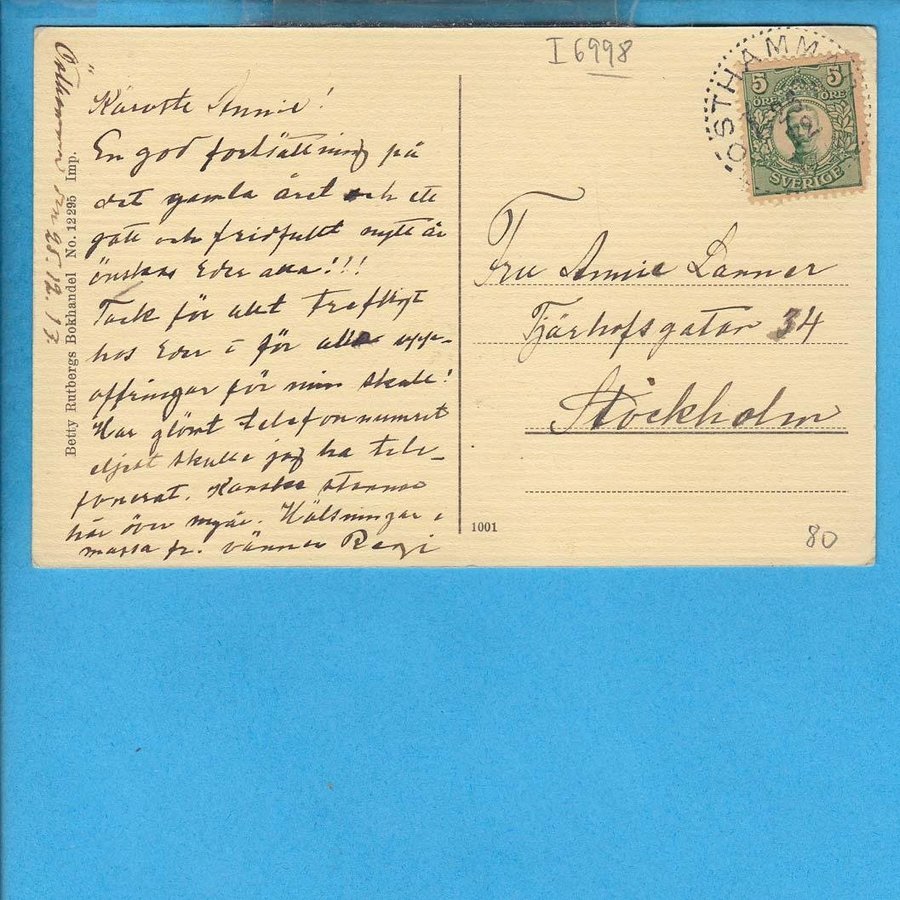 I 6998
Östhammar den 25.12.13
Betty Rutbergs Bokhandel No. 12295 Imp.
Käraste Annie!
En god fortsättning på
det gamla året och ett
gott och fridfullt nytt år
önskas Eder alla!!!
Tack för allt trefligt
hos Eder i för alla upp-
offringar för min skull!
Har glömt telefonnumret
eljest skulle jag ha tele-
fonerat. Kanske stannar
här över nyår. Hälsningar i
massa fr. vännen Regi
ÖSTHAMMAR
25
12
5 5
ÖRE ÖRE
SVERIGE
Fru Annie Lanner
Tjärhofsgatan 34
Stockholm
1001
80